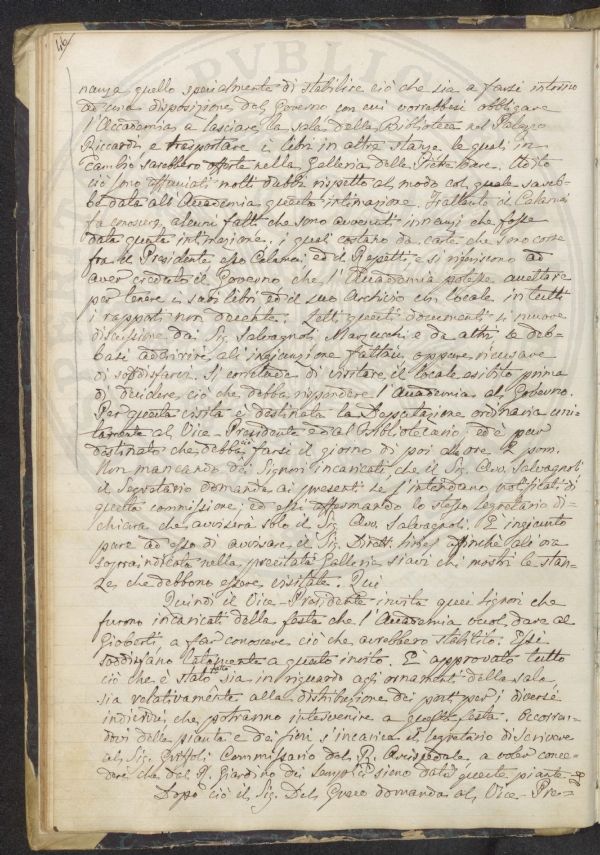 46
nanza quello specialmente di stabilire ciò che sia a farsi intorno
ad una disposizione del Governo con cui vorrebbesi obbligare
l'Accademia a lasciare la sala della Biblioteca nel Palazzo
Riccardi e trasportare i libri in altre stanze le quali in
cambio sarebbero offerte nella Galleria delle Statue. Udito
ciò sono affacciati molti dubbi rispetto al modo col quale sareb=
be data all'Accademia questa intimazione. Frattanto il Calamai
fa conoscere alcuni fatti che sono avvenuti innanzi che fosse
data questa intimazione, i quali costano da carte che sono corse
fra il Presidente esso Calamai ed il Repetti e si riferiscono ad
aver creduto il Governo che l'Accademia potesse accettare
per tenere i suoi libri ed il suo Archivio un locale in tutti
i rapporti non decente. Letti questi documenti si muove
discussione dai Sig. Salvagnoli Marzucchi e da altri se deb=
basi aderire all'ingiunzione fattaci, oppure ricusare
di soddisfarci. Si conclude di visitare il locale esibito prima
di decidere ciò che debba rispondere l'Accademia al Governo.
Per questa visita è destinata la Deputazione ordinaria uni=
tamente al Vice-Presidente ed al Bibliotecario, ed è pur
destinato che debba ciò farsi il giorno di poi alle ore 2 pom.
Non mancando dei Signori incaricati, che il Sig. Avv. Salvagnoli
il Segretario domanda ai presenti se s'intendano notificati di
questa commissione; ed essi affermando lo stesso Segretario di=
chiara che avviserà solo il Sig. Avv. Salvagnoli. È ingiunto
pure ad esso di avvisare il Sig. Dirett. affinchè all'ora
sopraindicata nella precitata Galleria siavi chi mostri le stan=
ze che debbono essere visitate. Qui
Quindi il Vice-Presidente invita quei Signori che
furono incaricati della festa che l'Accademia vuol dare al
Gioberti, a far conoscere ciò che avrebbero stabilito. Essi
soddisfano latamente a questo invito. È approvato tutto
ciò che è stato fatto sia in riguardo agli ornamenti della sala,
sia relativamente alla distribuzione dei posti per i diversi
individui, che potranno intervenire a questa festa. Occorren=
dovi delle piante e dei fiori, s'incarica il Segretario di scrivere
al Sig. Griffoli Commissario del R. Arcispedale, a voler conce=
dere che dal R. Giardino dei Semplici sieno date queste piante
Dopo ciò il Sig. Del Greco domanda al Vice-Pre=